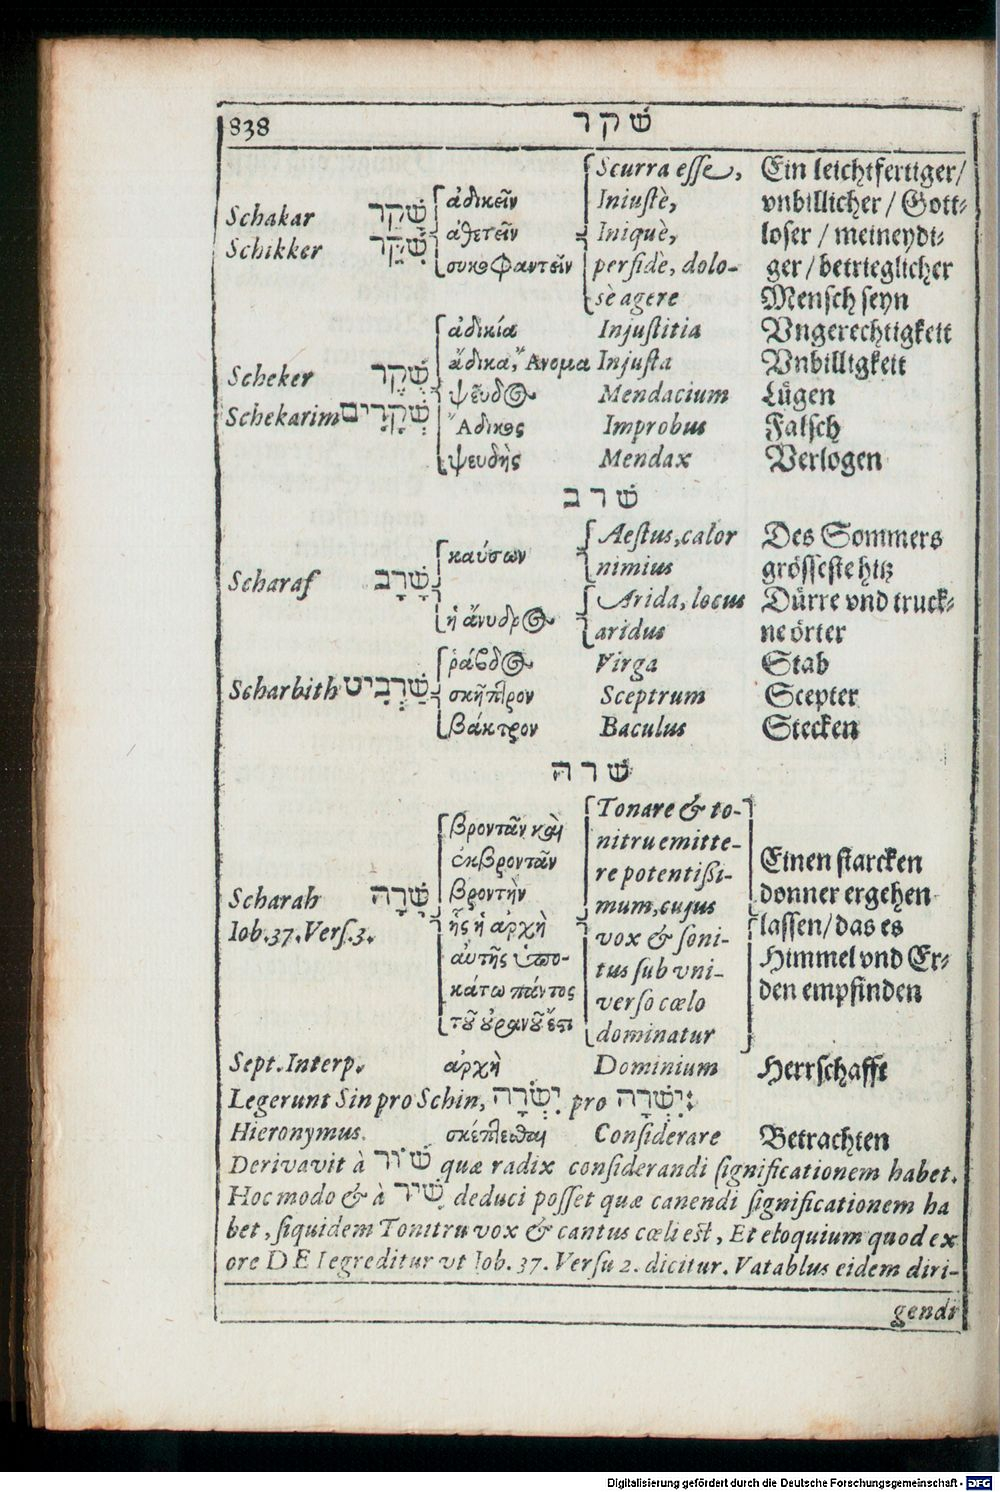 838 שקר
Scurra esse, Ein leichtfertiger/
Schakar שָׁקַר ἀδικεῖν Iniustè, vnbillicher / Gott-
Schikker שִׁקֵּר ἀθετεῖν Iniquè, loser / meineydi-
συκοφαντεῖν perfidè, dolo- ger / betrieglicher
sè agere Mensch seyn
ἀδικία Injustitia Vngerechtigkeit
Scheker שֶׁקֶר ἄδικα, Ἄνομα Injusta Vnbilligkeit
ψεῦδος Mendacium Lügen
Schekarim שְׁקָרִים Ἄδικος Improbus Falsch
ψευδὴς Mendax Verlogen
שרב
καύσων Aestus, calor Des Sommers
nimius grösseste hitz
Scharaf שָׁרָב Arida, locus Dürre vnd truck-
ἡ ἄνυδρος aridus ne örter
ῥάβδος Virga Stab
Scharbith שַׁרְבִיט σκῆπτρον Sceptrum Scepter
βάκτρον Baculus Stecken
שרה
Tonare & to-
βροντᾶν καὶ nitru emitte-
ἐκβροντᾶν re potentißi- Einen starcken
Scharah שָׁרָה βροντὴν mum, cujus donner ergehen
Iob. 37. Vers. 3. ἧς ἡ ἀρχὴ vox & soni- lassen / das es
αὐτῆς ὑπο- tus sub vni- Himmel vnd Er-
κάτω πάντος verso cœlo den empfinden
τοῦ οὐρανοῦ ἔστι dominatur
Sept. Interp. ἀρχὴ Dominium Herrschafft
Legerunt Sin pro Schin, יִשְׂרָה pro יִשְׁרָה:
Hieronymus. σκέπτεσθαι Considerare Betrachten
Derivavit à שׁוּר quæ radix considerandi significationem habet.
Hoc modo & à שִׁיר deduci posset quæ canendi significationem ha
bet, siquidem Tonitru vox & cantus cœli est, Et eloquium quod ex
ore DEI egreditur vt Iob. 37. Versu 2. dicitur. Vatablus eidem diri-
gendi
Digitalisierung gefördert durch die Deutsche Forschungsgemeinschaft - DFG